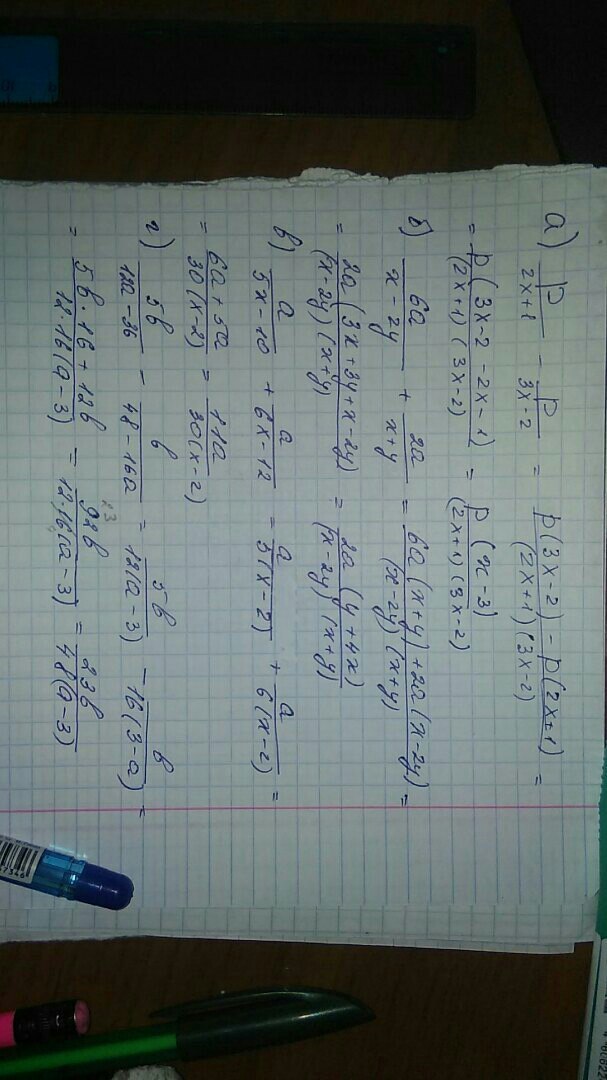 а) p/(2x+1) - p/(3x-2) = (p(3x-2) - p(2x+1))/((2x+1)(3x-2)) =
= p(3x-2-2x-1)/((2x+1)(3x-2)) = p(x-3)/((2x+1)(3x-2))
б) 6a/(x-2y) + 2a/(x+y) = (6a(x+y)+2a(x-2y))/((x-2y)(x+y)) =
= 2a(3x+3y+x-2y)/((x-2y)(x+y)) = 2a(y+4x)/((x-2y)(x+y))
в) a/(5x-10) + a/(6x-12) = a/(5(x-2)) + a/(6(x-2)) =
= (6a+5a)/(30(x-2)) = 11a/(30(x-2))
г) 5b/(12a-36) - b/(48-16a) = 5b/(12(a-3)) - b/(16(3-a)) =
= (5b·16+12b)/(12·16(a-3)) = 92b/(12·16(a-3)) = 23b/(48(a-3))